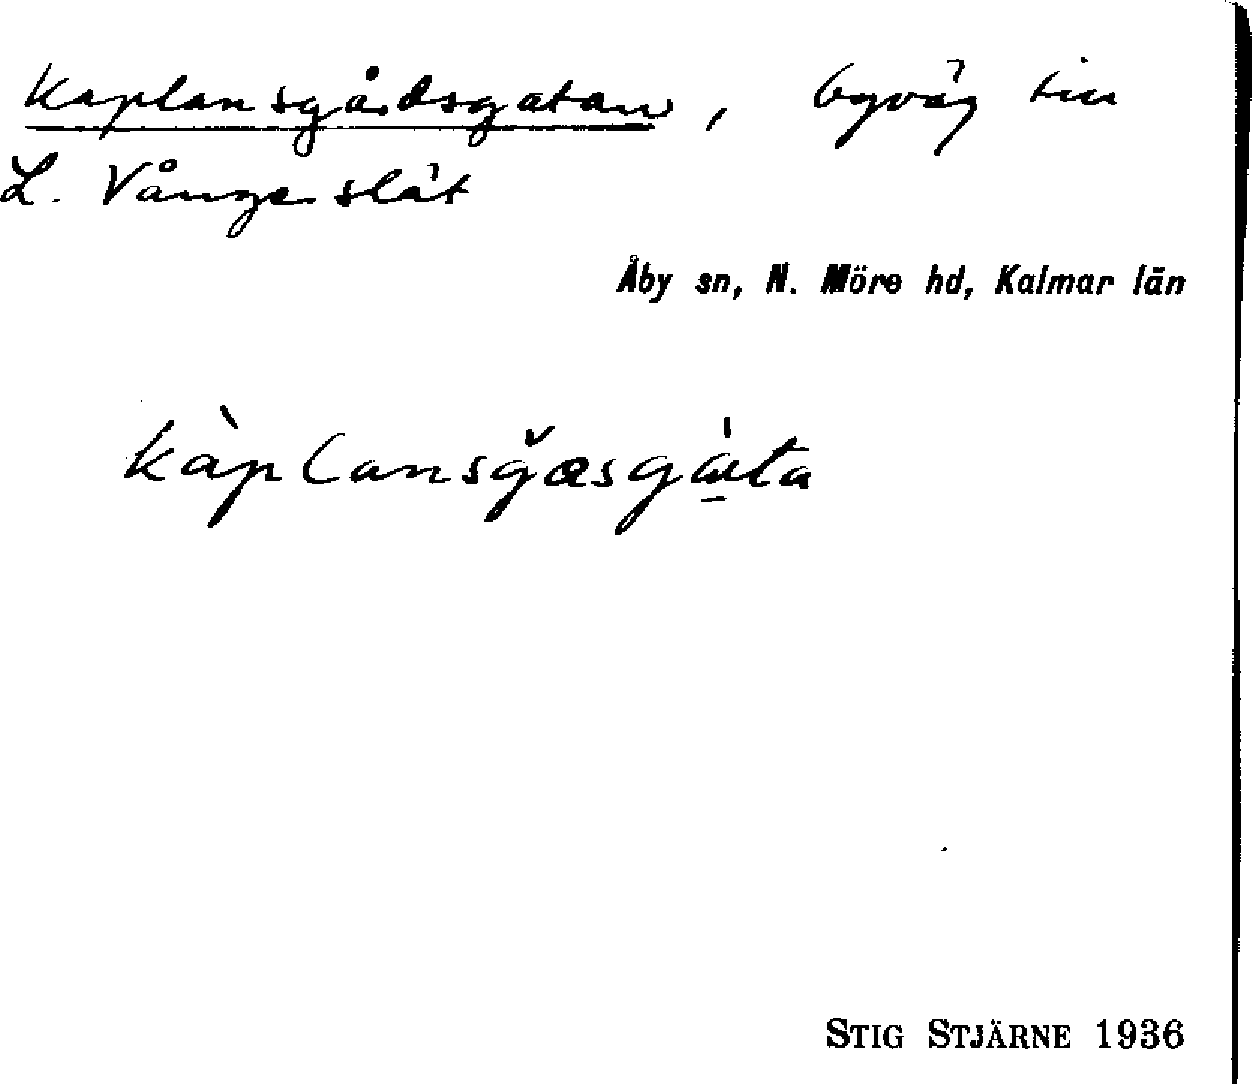 Kaplansgårdsgatan, byväg till
L. Vångerslät
Åby sn, N. Möre hd, Kalmar län
kàplansgǒsgàta
STIG STJÄRNE 1936